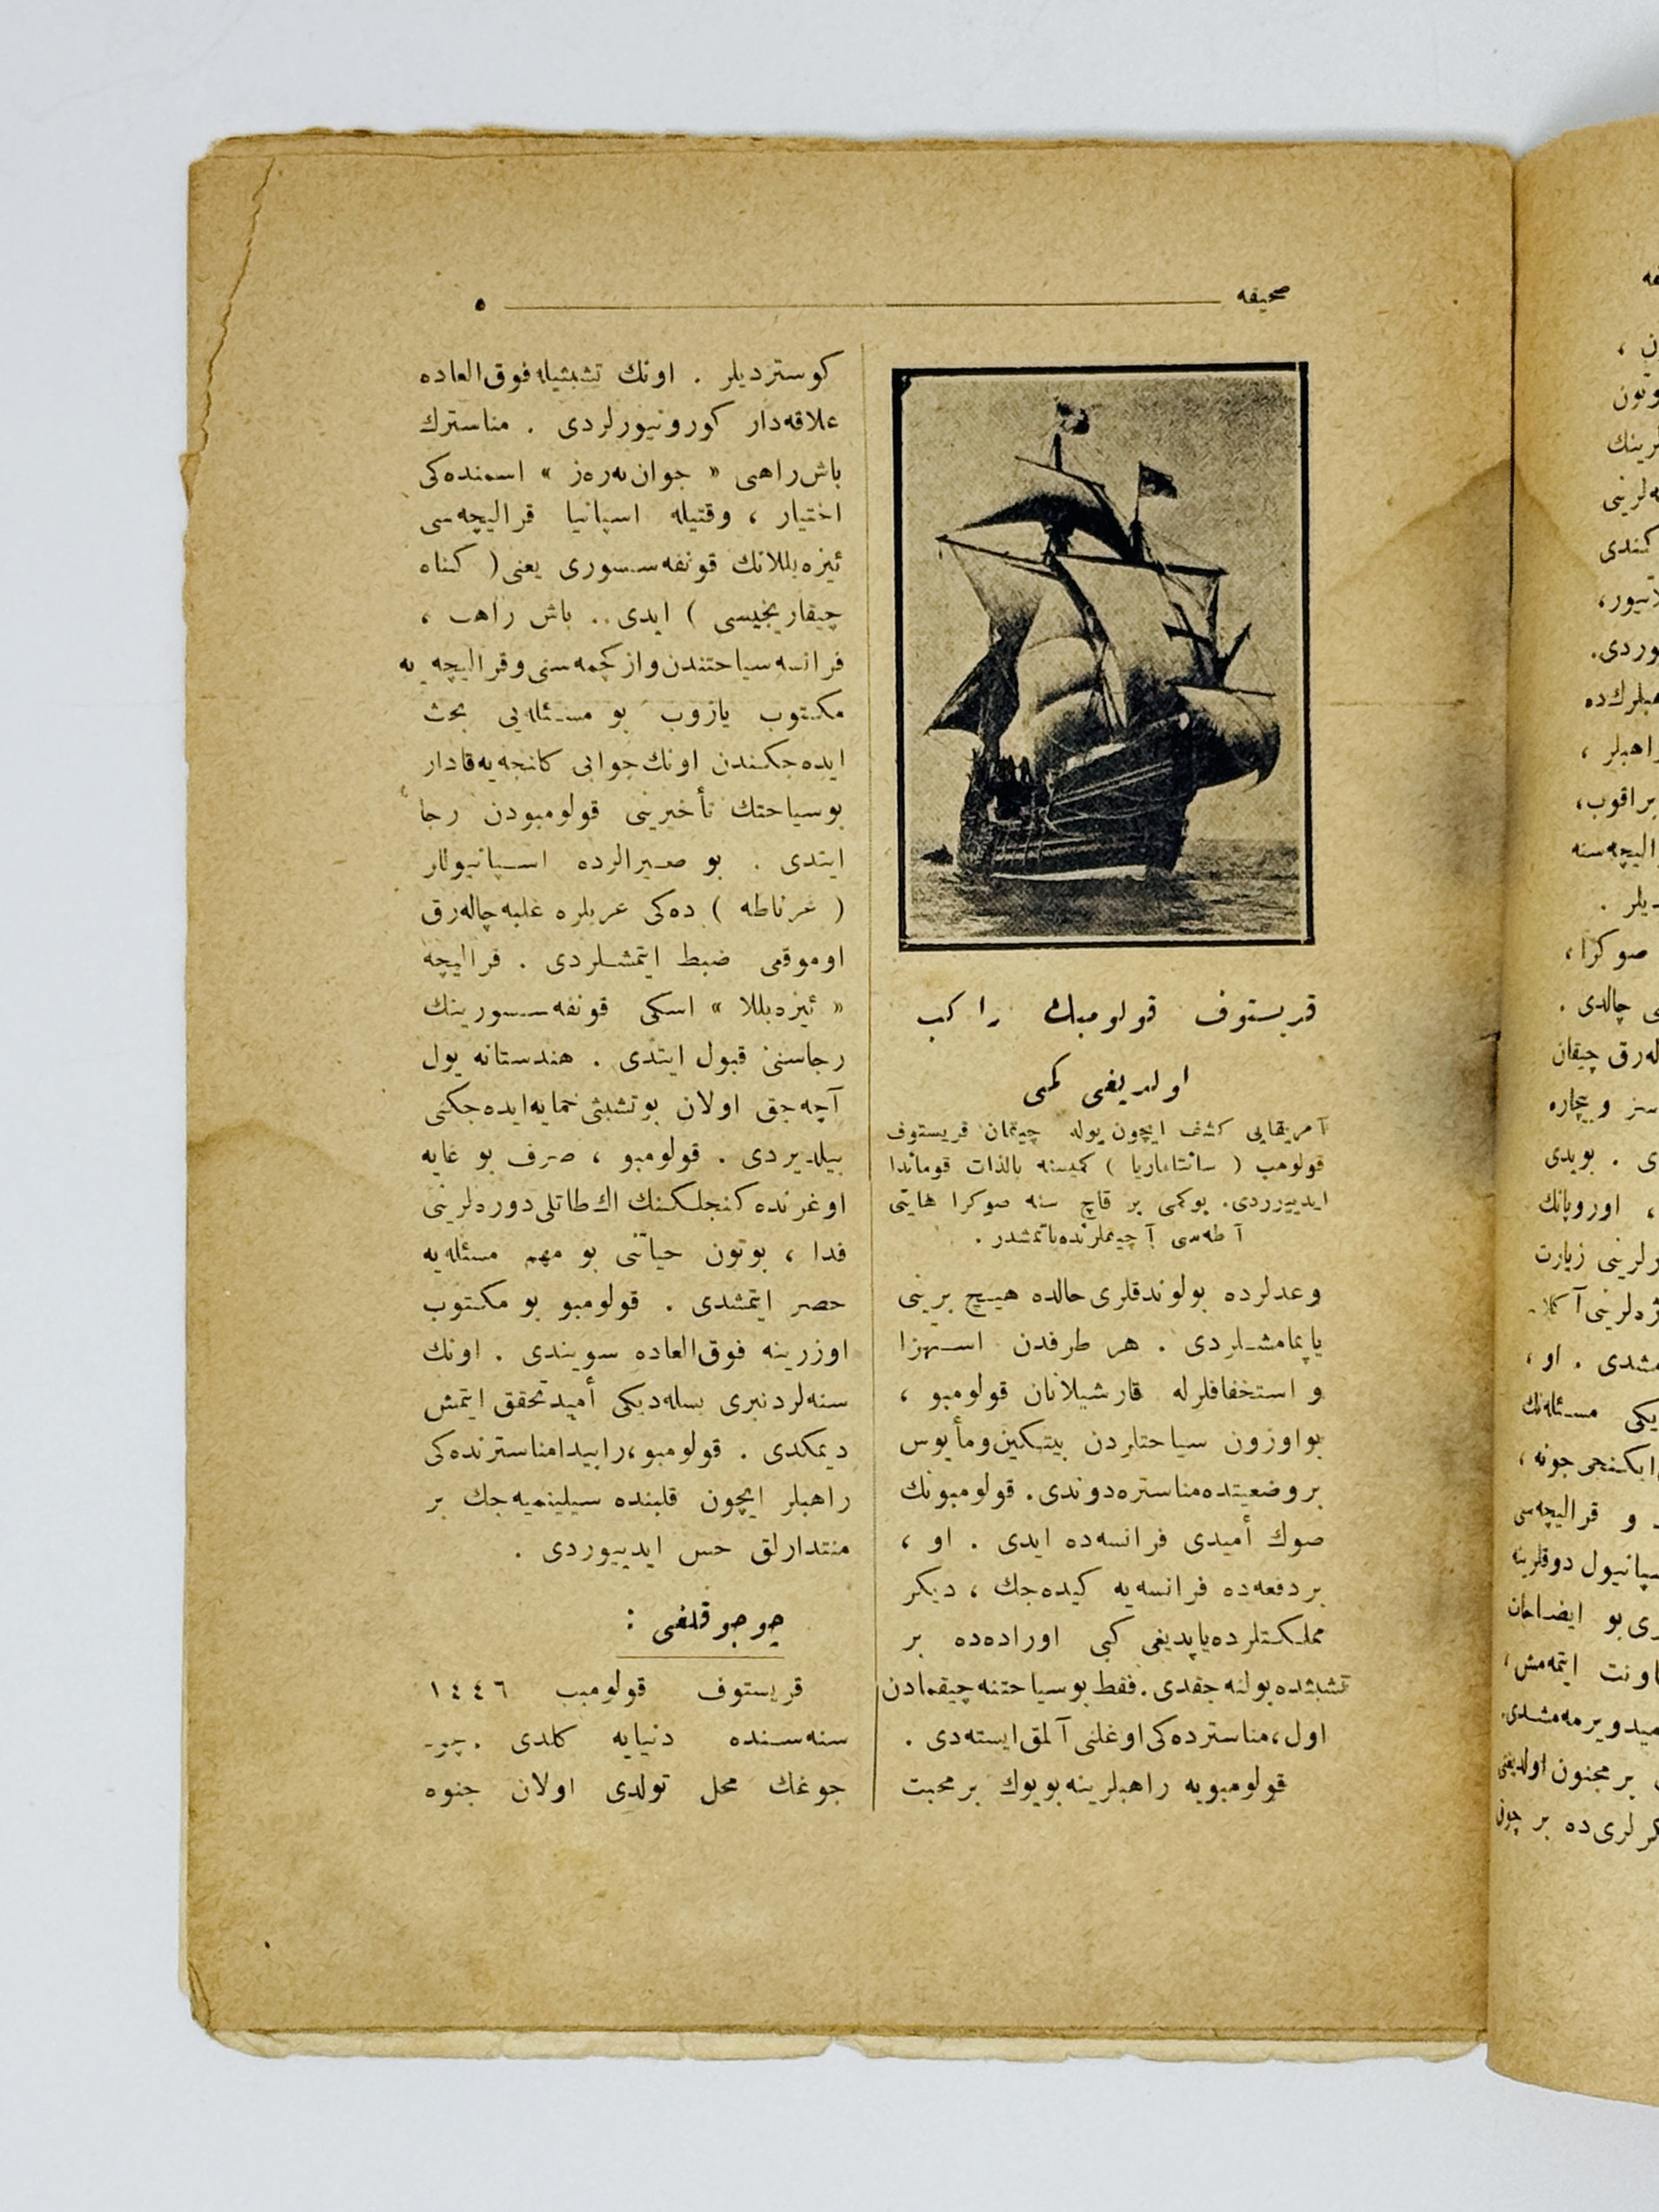 صحيفه ٥
قريستوف قولومبك را كب
اولديغى كمى
آمريقايى كشف ايچون يوله چيقان قريستوف
قولومب ( سانتاماريا ) كميسنه بالذات قوماندا
ايدييوردى. بوكمى بر قاچ سنه صوكرا هايتى
آطه‌سى آچيقلرنده‌باتمشدر .
وعدلرده بولوندقلرى حالده هيچ برينى
ياپمامشلردى . هر طرفدن استهزا
و استخفافلرله قارشيلانان قولومبو ،
بواوزون سياحتلردن بيتكين‌ومأيوس
بروضعيتده‌مناستره‌دوندى. قولومبونك
صوك أميدى فرانسه‌ده ايدى . او ،
بردفعه‌ده فرانسه‌يه كيده‌جك ، ديكر
مملكتلرده‌ياپديغى كبى اوراده‌ده بر
تشبثده‌بولنه‌جقدى.فقط بوسياحتنه‌چيقمادن
اول،مناسترده‌كى‌اوغلنى آلمق‌ايسته‌دى .
قولومبويه راهبلرينه‌بويوك برمحبت
كوسترديلر . اونك تشبثيله‌فوق‌العاده
علاقه‌دار كورونيورلردى . مناسترك
باش‌راهبى « جوان‌په‌ره‌ز » اسمنده‌كى
اختيار ، وقتيله اسپانيا قراليچه‌سى
ئيزه‌بللانك قونفه‌سسورى يعنى( كناه
چيقاريخيسى ) ايدى.. باش راهب ،
فرانسه‌سياحتندن‌وازكچمه‌سنى‌وقراليچه‌يه
مكتوب يازوب بو مسئله‌يى بحث
ايده‌جكندن اونك‌جوابى كلنجه‌يه‌قادار
بوسياحتك تأخيرينى قولومبودن رجا
ايتدى . بو صيرالرده اسپانيوللر
( غرناطه ) ده‌كى عربلره غلبه‌چاله‌رق
اوموقعى ضبط ايتمشلردى . قراليچه
« ئيزه‌بللا » اسكى قونفه‌سسورينك
رجاسنى قبول ايتدى . هندستانه يول
آچه‌جق اولان بوتشبثى‌حمايه‌ايده‌جكنى
بيلديردى . قولومبو ، صرف بو غايه
اوغرنده‌كنجلكنك اك‌طاتلى‌دوره‌لرينى
فدا ، بوتون حياتنى بو مهم مسئله‌يه
حصر ايتمشدى . قولومبو بو مكتوب
اوزرينه فوق‌العاده سويندى . اونك
سنه‌لردنبرى بسله‌ديكى أميدتحقق ايتمش
ديمكدى . قولومبو،رابيدامناسترنده‌كى
راهبلر ايچون قلبنده سيلينميه‌جك بر
منتدارلق حس ايدييوردى .
چوجوقلغى :
قريستوف قولومب ١٤٤٦
سنه‌سنده دنيايه كلدى . چو-
جوغك محل تولدى اولان جنوه